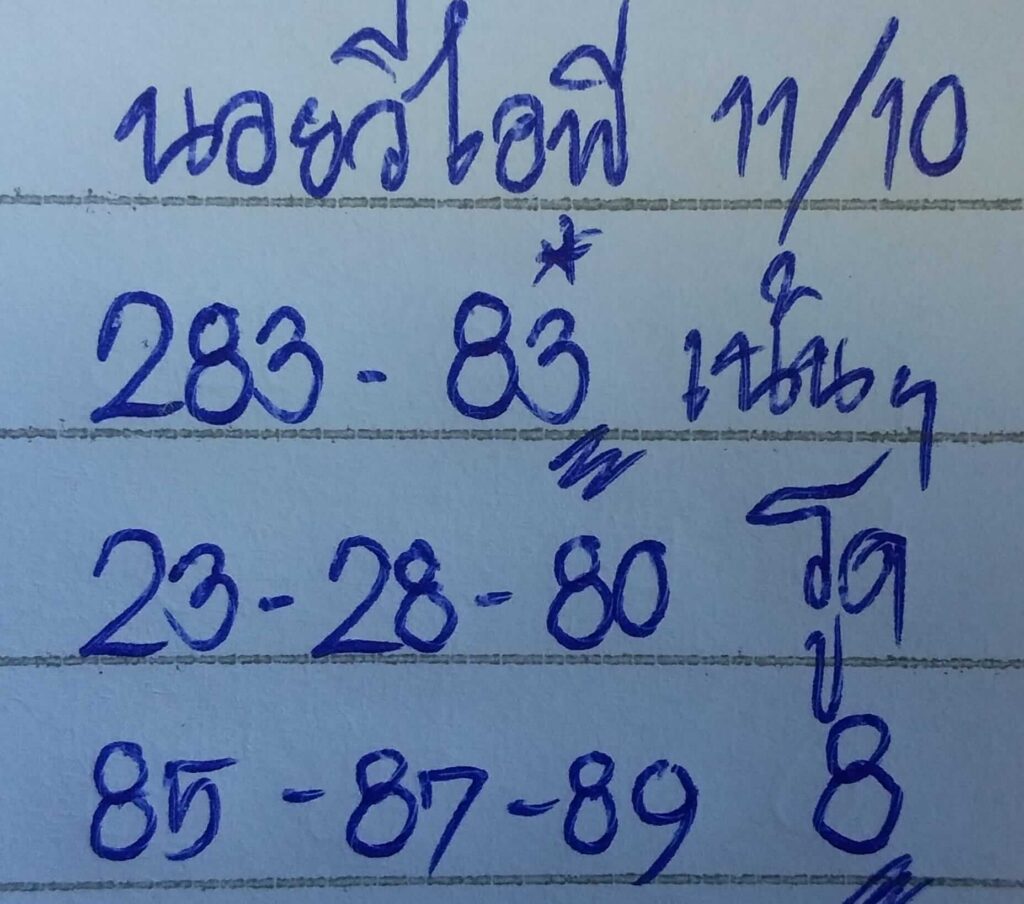 นอยวีไอพี 11/10
283 - 83* เน้นๆ
23 - 28 - 80 รูด
85 - 87 - 89 8